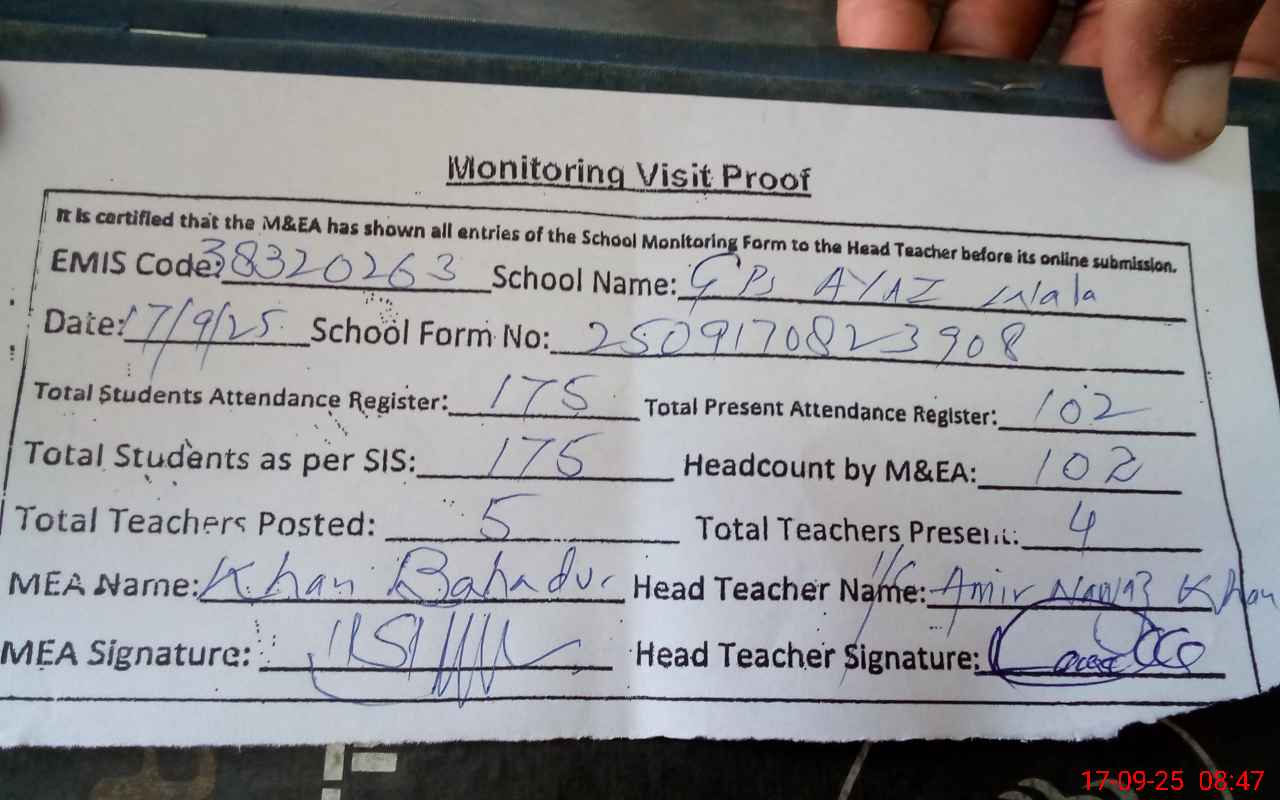 Monitoring Visit Proof
It is certified that the M&EA has shown all entries of the School Monitoring Form to the Head Teacher before its online submission.
EMIS Code: 38320263 School Name: GPS AYAZ
Date: 17/9/25 School Form No: 2509170823908
Total Students Attendance Register: 175 Total Present Attendance Register: 102
Total Students as per SIS: 175 Headcount by M&EA: 102
Total Teachers Posted: 5 Total Teachers Present: 4
MEA Name: Khan Bahadur Head Teacher Name: I/C Amir Nawaz Khan
MEA Signature: Head Teacher Signature:
17-09-25 08:47